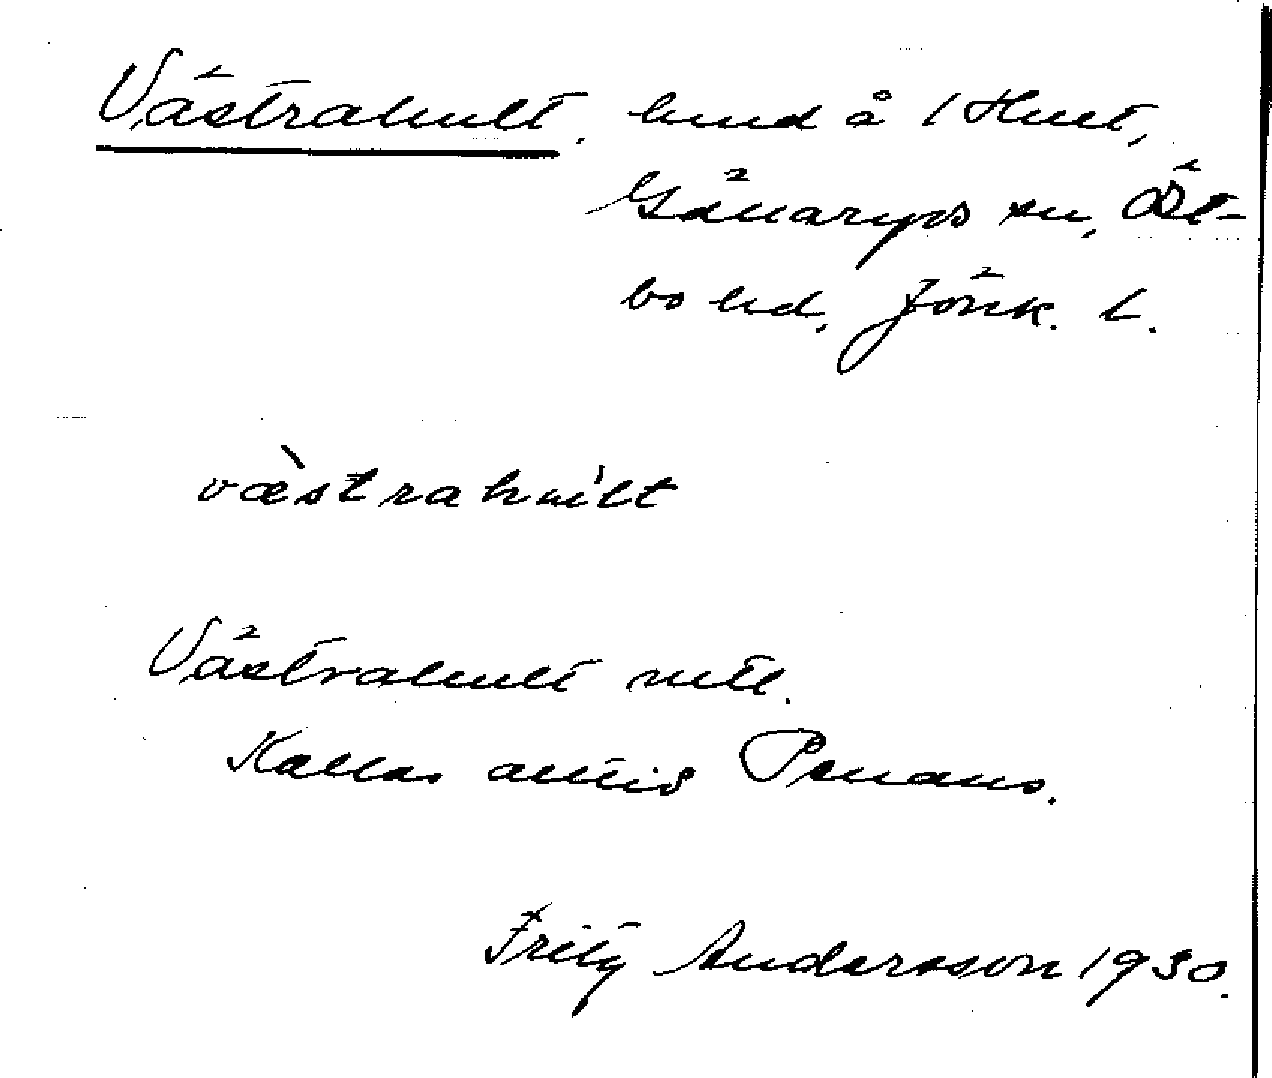 Västrahult. lund å 1 Hult,
Gällaryds sn, Öst-
bo hd, Jönk. l.
væ̀strahúlt
Västrahult mtl.
Kallas allts
Fritz Andersson 1930.